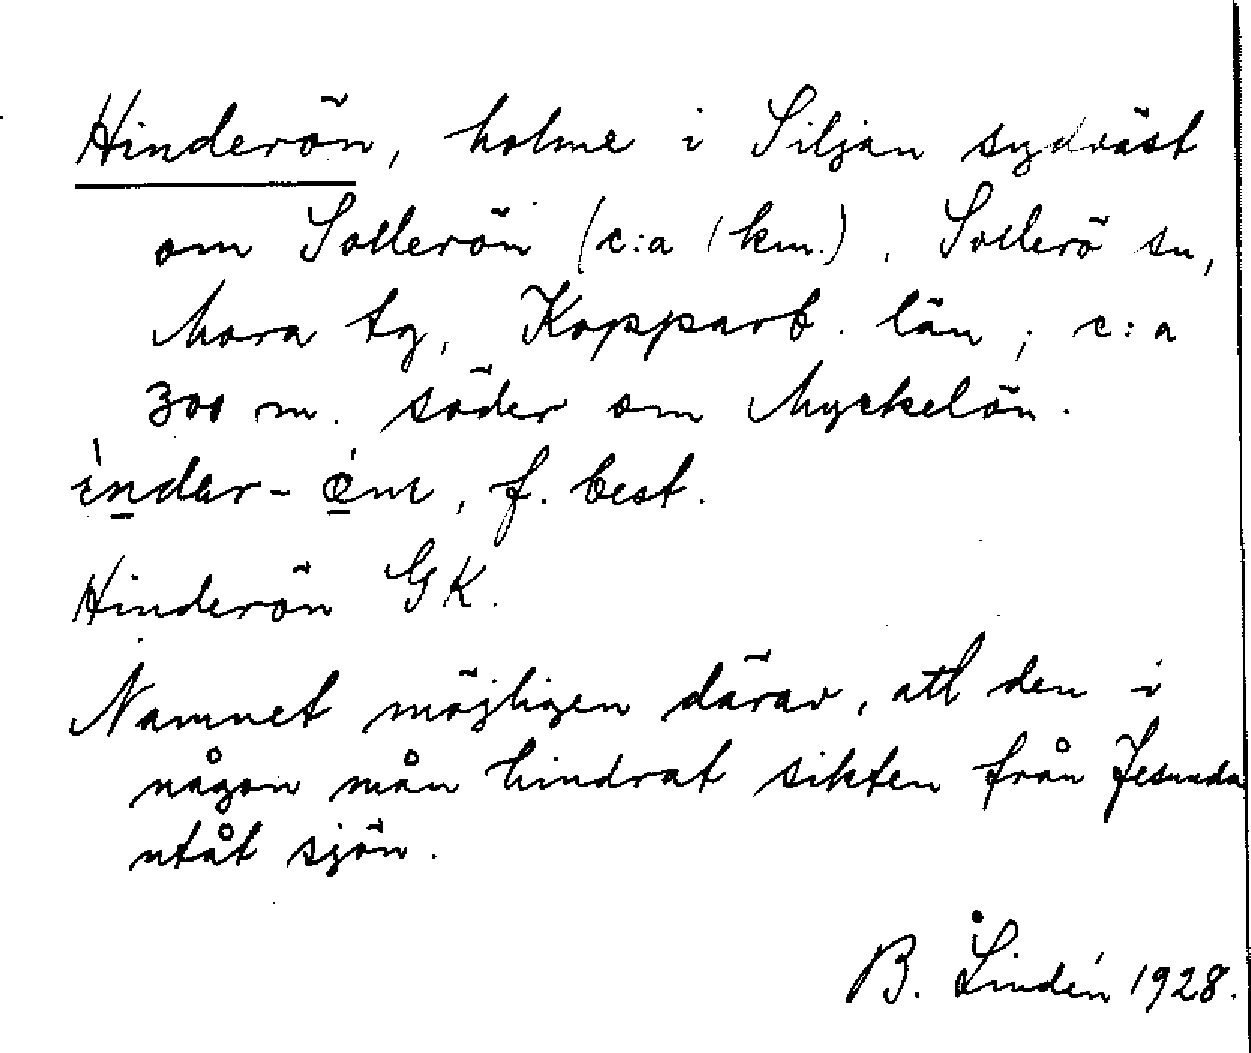 Hinderön, holme i Siljan sydväst
om Sollerön (c:a 1 km.). Sollerö sn,
Mora tg, Kopparb. län; c:a
300 m. söder om Myckelön.
indar-önı, f. best.
Hinderön GK.
Namnet möjligen därav, att den i
någon mån hindrat sikten från Jesunda
utåt sjön.
B. Lindén 1928.